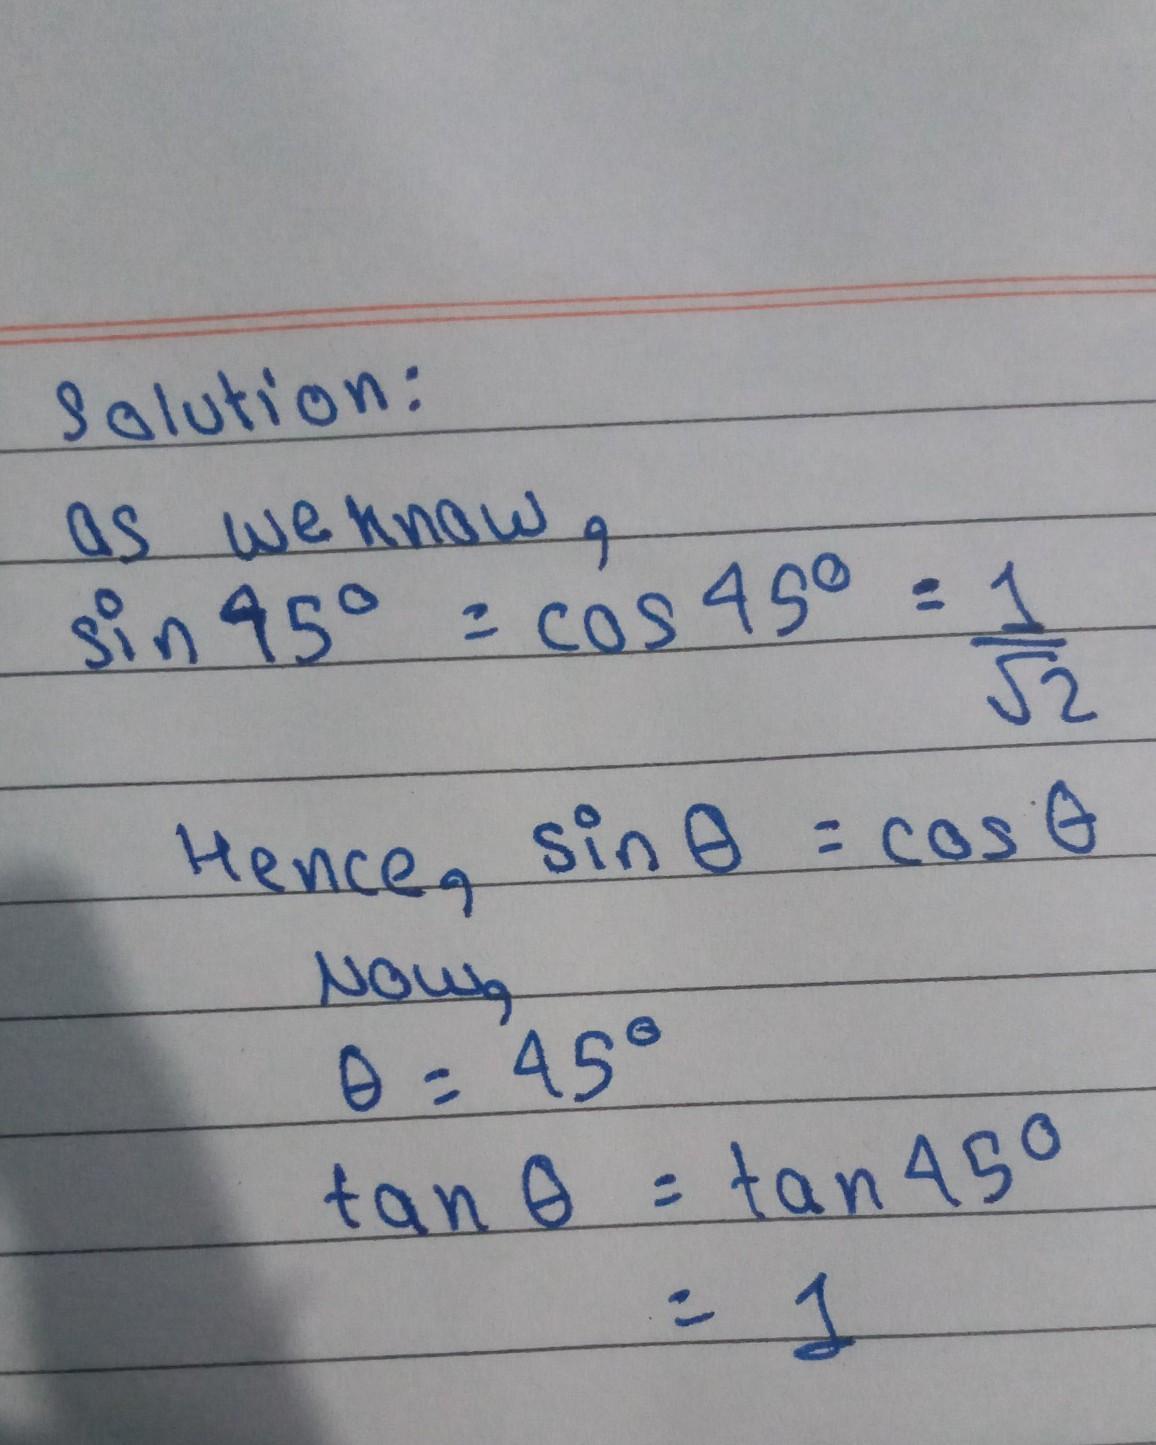 Solution:
as we know,
sin 45° = cos 45° = 1/√2
Hence, sin θ = cos θ
Now,
θ = 45°
tan θ = tan 45°
= 1